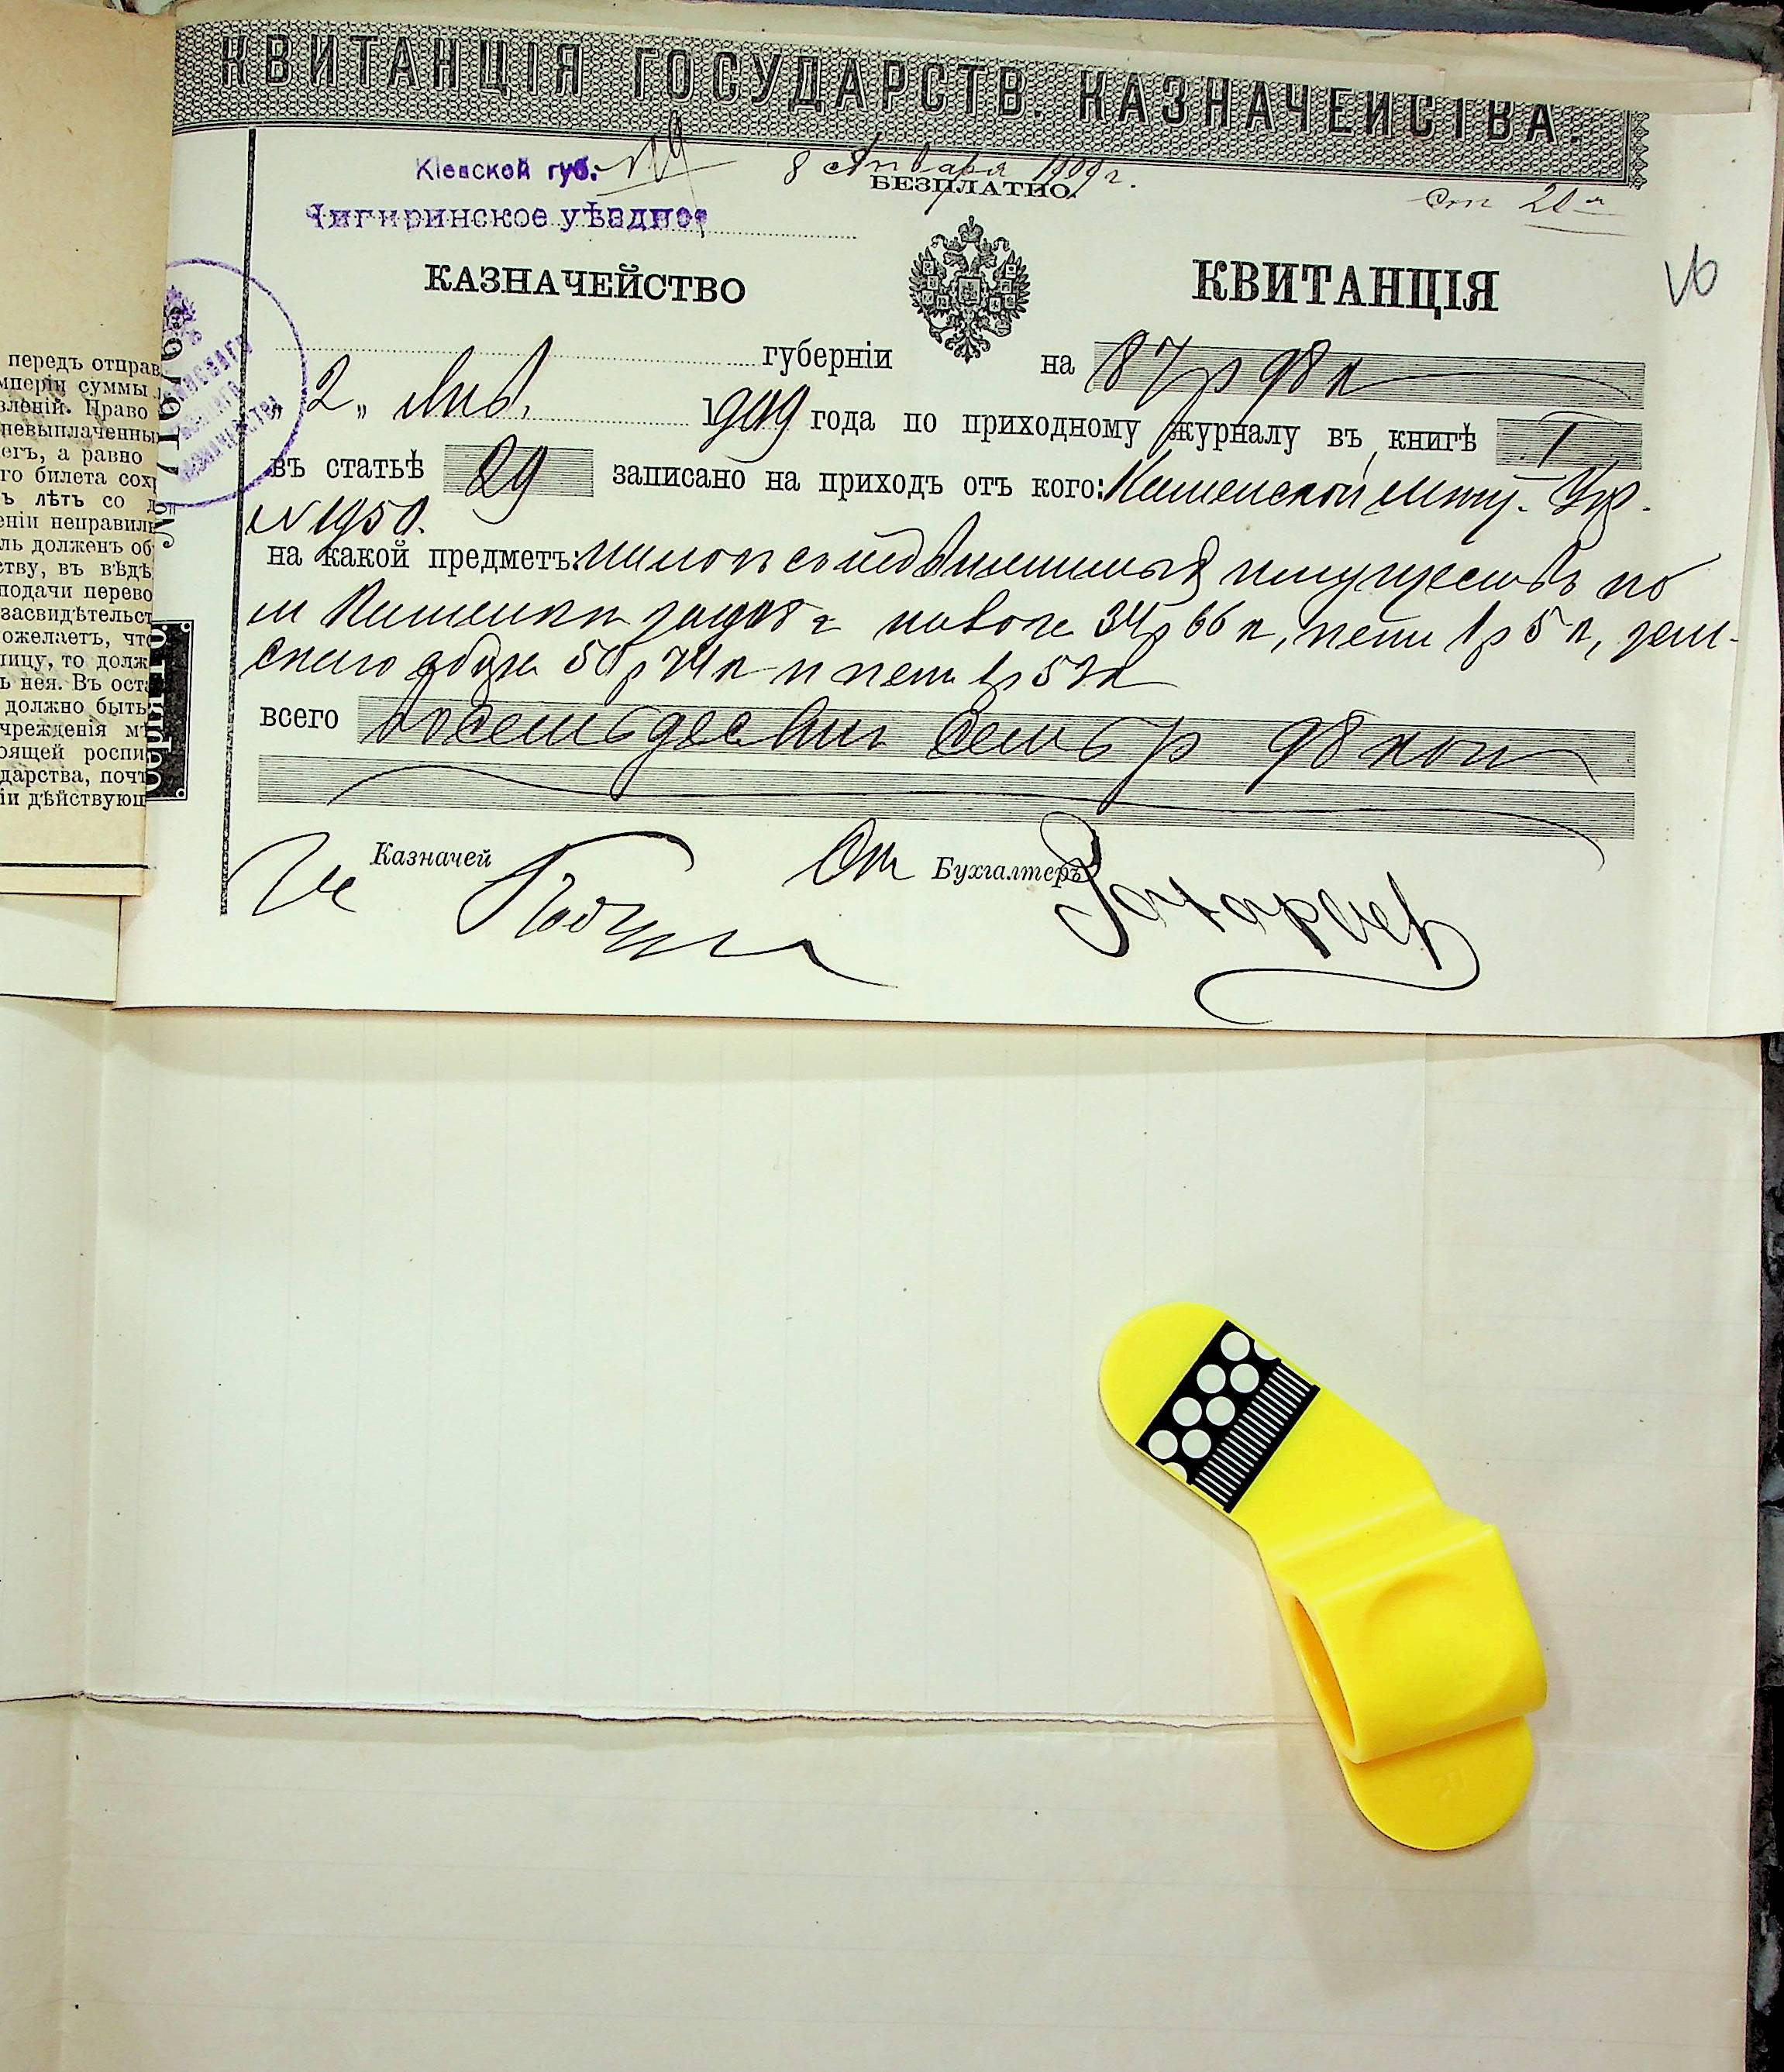 КВИТАНЦІЯ ГОСУДАРСТВ. КАЗНАЧЕЙСТВА.
Кіевской губ. №9 8 Января 1909 г.
БЕЗПЛАТНО.
Чигиринское уѣздное
КАЗНАЧЕЙСТВО КВИТАНЦІЯ
губерніи на 87 р 98 к
„2„ Янв. 1909 года по приходному журналу въ книгѣ I
въ статьѣ 29 записано на приходъ отъ кого: Упр.
№ 1950.
на какой предметъ: налогъ съ недвижимыхъ имуществъ по
м г 34 р 66 к, пени 1 р 5 к, зем-
скаго сбора 50 р 74 к и пени 1 р 53 к
всего восемьдесятъ семь р 98 коп
Казначей Бухгалтеръ
передъ отправ
мперіи суммы
вленій. Право
невыплаченны
егъ, а равно
го билета сох
ъ лѣтъ со д
еніи неправиль
ль долженъ об
ству, въ вѣдѣ
подачи перево
засвидѣтельст
ожелаетъ, что
ницу, то долж
ь нея. Въ оста
должно быть
чрежденія мѣ
оящей роспи
дарства, почт
іи дѣйствующ